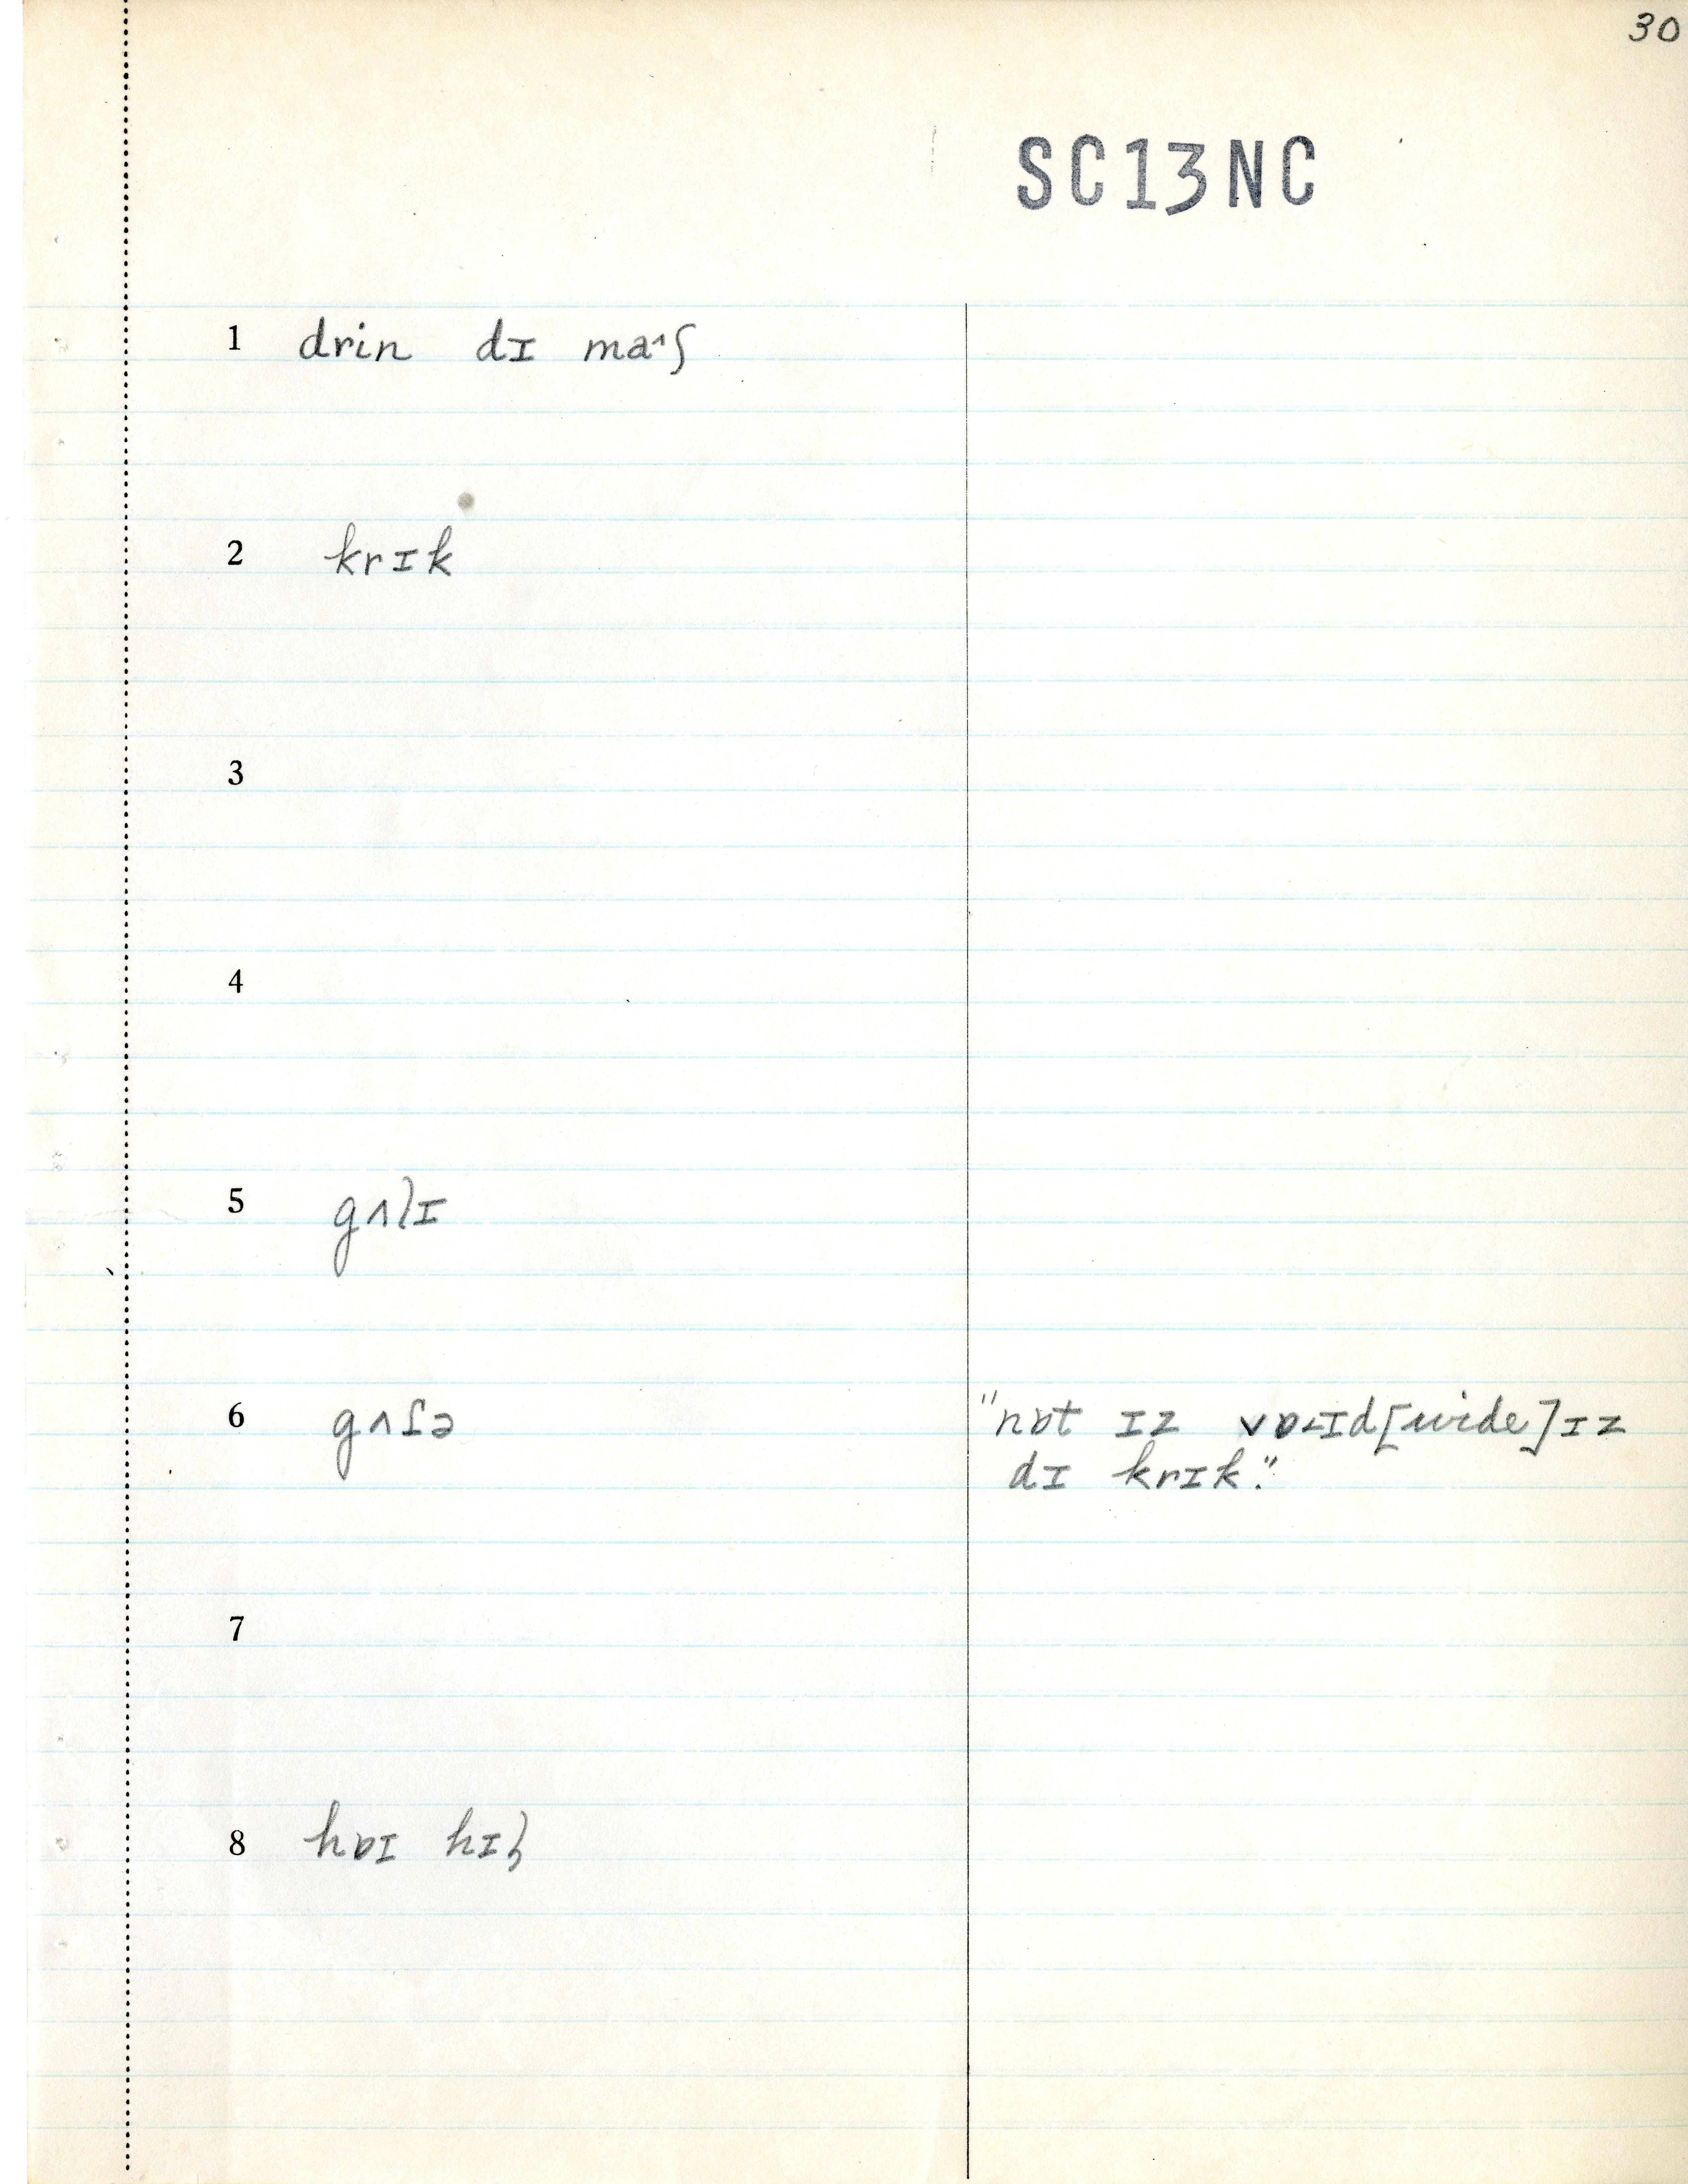 30
SC13NC
1 drin dɪ ma^ʃ
2 krɪk
3
4
5 gʌlɪ
6 "nɒt ɪz vɒ<ɪd[wide]ɪz
dɪ krɪk."
7
8 hɒɪ